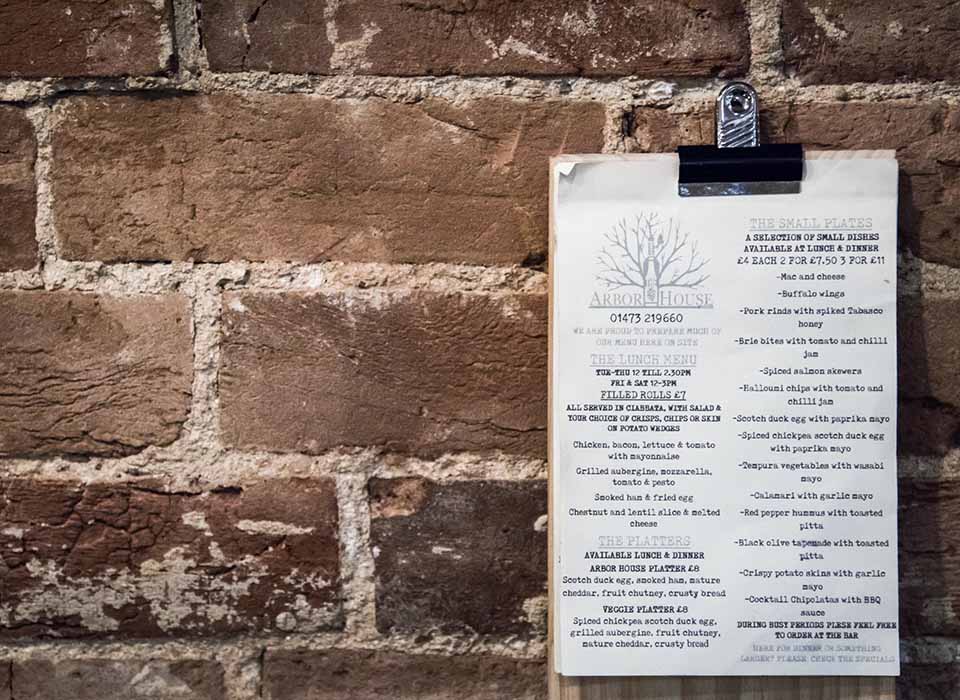 ARBOR HOUSE
01473 219660
WE ARE PROUD TO PREPARE MUCH OF
OUR MENU HERE ON SITE
THE LUNCH MENU
TUE-THU 12 TILL 2.30PM
FRI & SAT 12-3PM
FILLED ROLLS £7
ALL SERVED IN CIABBATA, WITH SALAD &
YOUR CHOICE OF CRISPS, CHIPS OR SKIN
ON POTATO WEDGES
Chicken, bacon, lettuce & tomato
with mayonnaise
Grilled aubergine, mozzarella,
tomato & pesto
Smoked ham & fried egg
Chestnut and lentil slice & melted
cheese
THE PLATTERS
AVAILABLE LUNCH & DINNER
ARBOR HOUSE PLATTER £8
Scotch duck egg, smoked ham, mature
cheddar, fruit chutney, crusty bread
VEGGIE PLATTER £8
Spiced chickpea scotch duck egg,
grilled aubergine, fruit chutney,
mature cheddar, crusty bread
THE SMALL PLATES
A SELECTION OF SMALL DISHES
AVAILABLE AT LUNCH & DINNER
£4 EACH 2 FOR £7.50 3 FOR £11
-Mac and cheese
-Buffalo wings
-Pork rinds with spiked Tabasco
honey
-Brie bites with tomato and chilli
jam
-Spiced salmon skewers
-Halloumi chips with tomato and
chilli jam
-Scotch duck egg with paprika mayo
-Spiced chickpea scotch duck egg
with paprika mayo
-Tempura vegetables with wasabi
mayo
-Calamari with garlic mayo
-Red pepper hummus with toasted
pitta
-Black olive tapenade with toasted
pitta
-Crispy potato skins with garlic
mayo
-Cocktail Chipolatas with BBQ
sauce
DURING BUSY PERIODS PLESE FEEL FREE
TO ORDER AT THE BAR
HERE FOR DINNER OR SOMETHING
LARGER? PLEASE CHECK THE SPECIALS